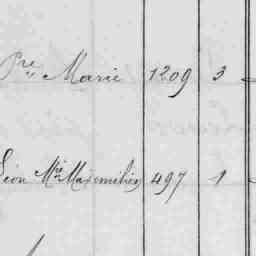 Pre Marie 1209 3
Léon Mie Maximilien 497 1